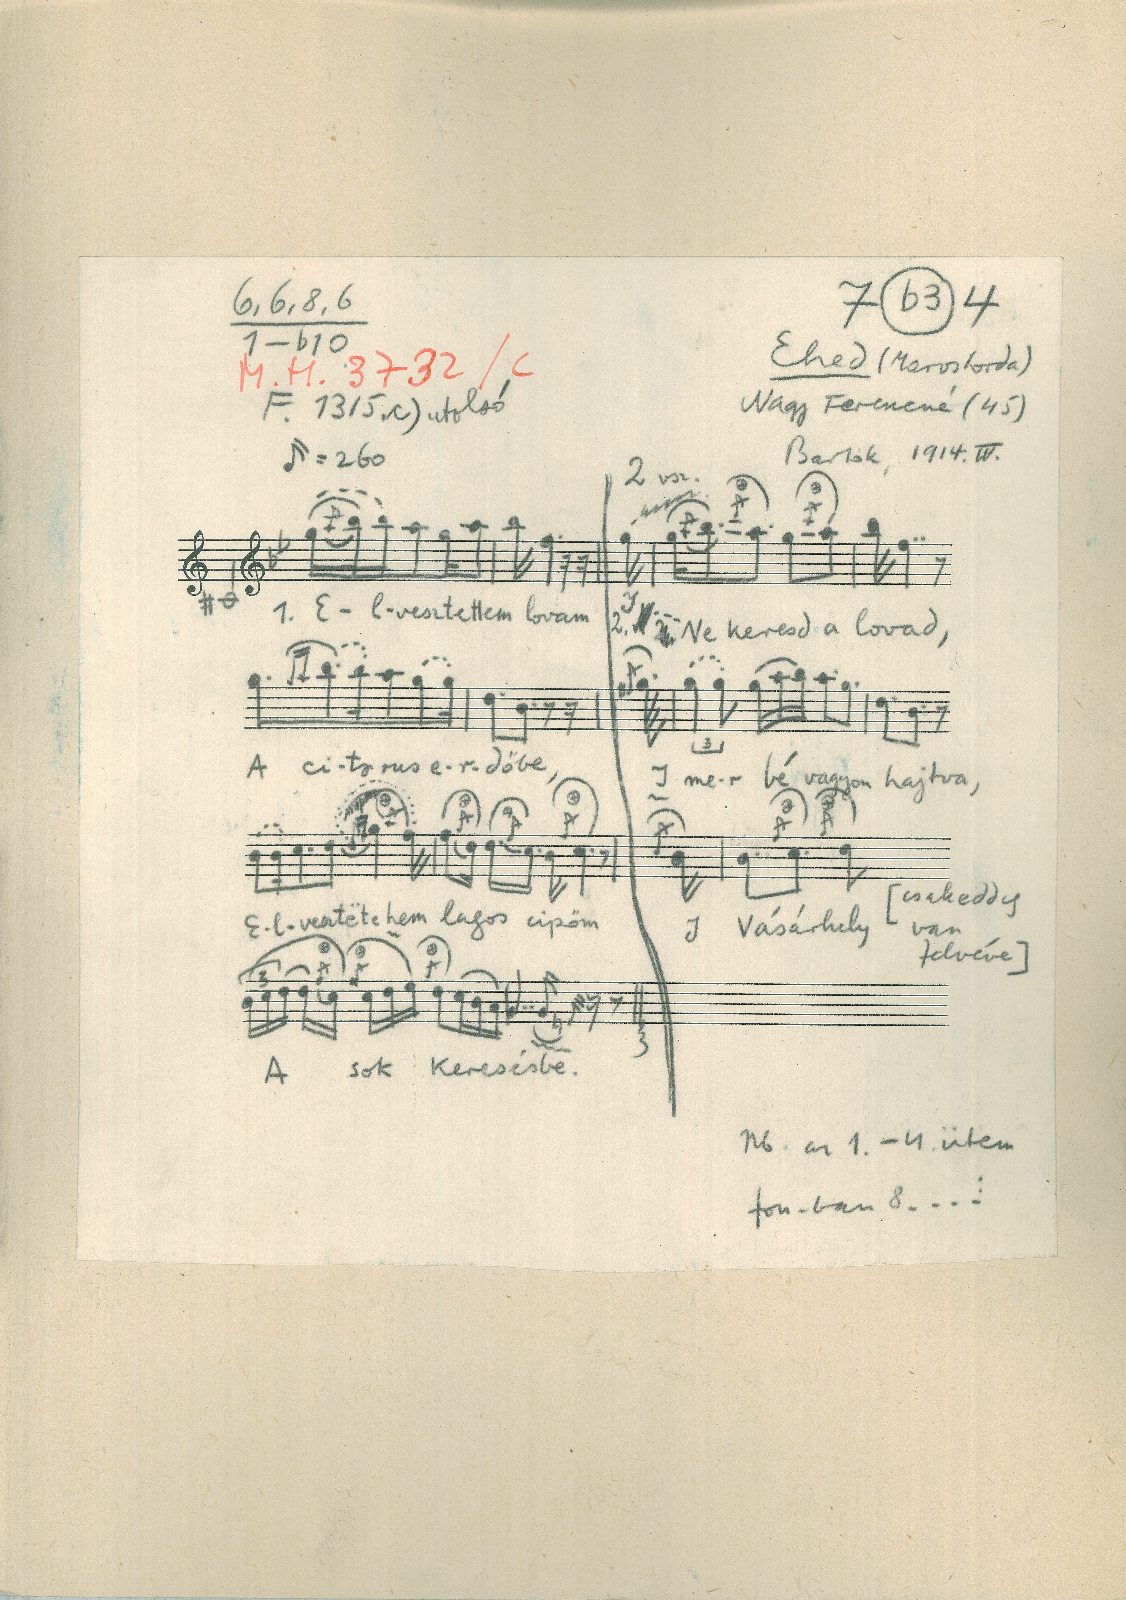 6, 6, 8, 6
1–b10
M.M. 3732/c
F. 1315.c) utolsó
♪ = 260
7 (b3) 4
Ehed (Marostorda)
Nagy Ferencné (45)
Bartók, 1914. IV.
2 vsz.
1. E-l-vesztettem lovam
2. Ne keresd a lovad,
A ci-t-rus e-r-dőbe,
3
J me-r bé vagyon hajtva,
E-l-vesztëtehem lagos cipőm
J Vásárhely [csakeddig
van
felvéve]
3
3
A sok keresésbe.
Nb. az 1.–4. ütem
fon-ban 8.----